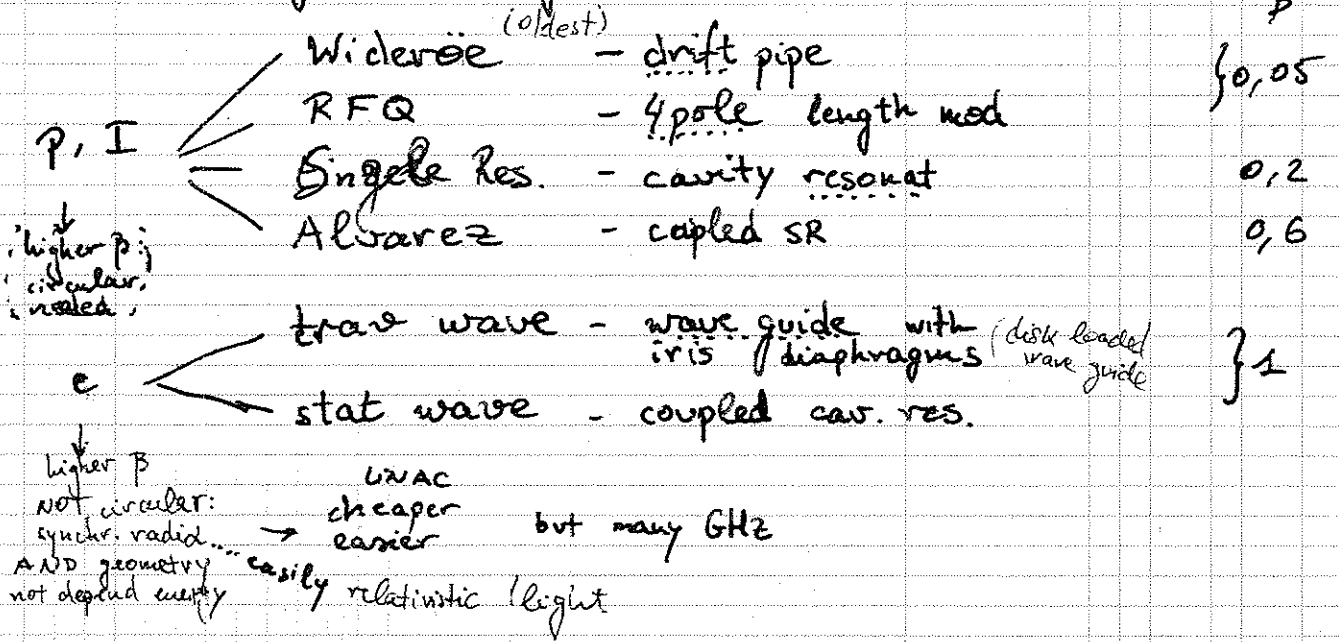 (oldest)
β
Wideröe - drift pipe } 0,05
RFQ - 4pole length mod
p, I
Singele Res. - cavity resonat 0,2
Alvarez - coupled SR 0,6
higher β:
circular.
needed
trav wave - wave guide with iris / diaphragms (disk loaded wave guide } 1
e
stat wave - coupled cav. res.
higher β
NOT circular:
synchr. radia....
AND geometry
not depend energy
→ LINAC
cheaper
easier
but many GHz
easily relativistic / light